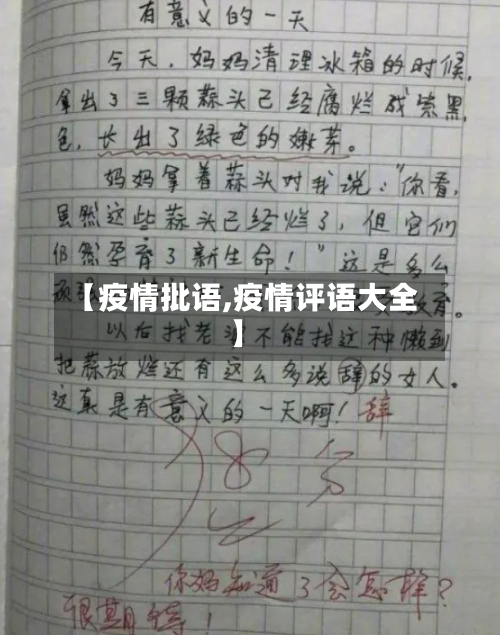 有意义的一天
今天,妈妈清理冰箱的时候,
拿出了三颗蒜头已经腐烂成紫黑
色,长出了绿色的嫩芽。
妈妈拿着蒜头对我说:“你看,
虽然这些蒜头已经烂了,但它们
仍然孕育了新生命!”这是多么
顽强
【疫情批语,疫情评语大全
】
教育。
以后找老婆不能找这种懒到
把蒜放烂还有这么多说辞的女人。
这真是有意义的一天啊!
辞
你妈知道了会怎样?
很期待!